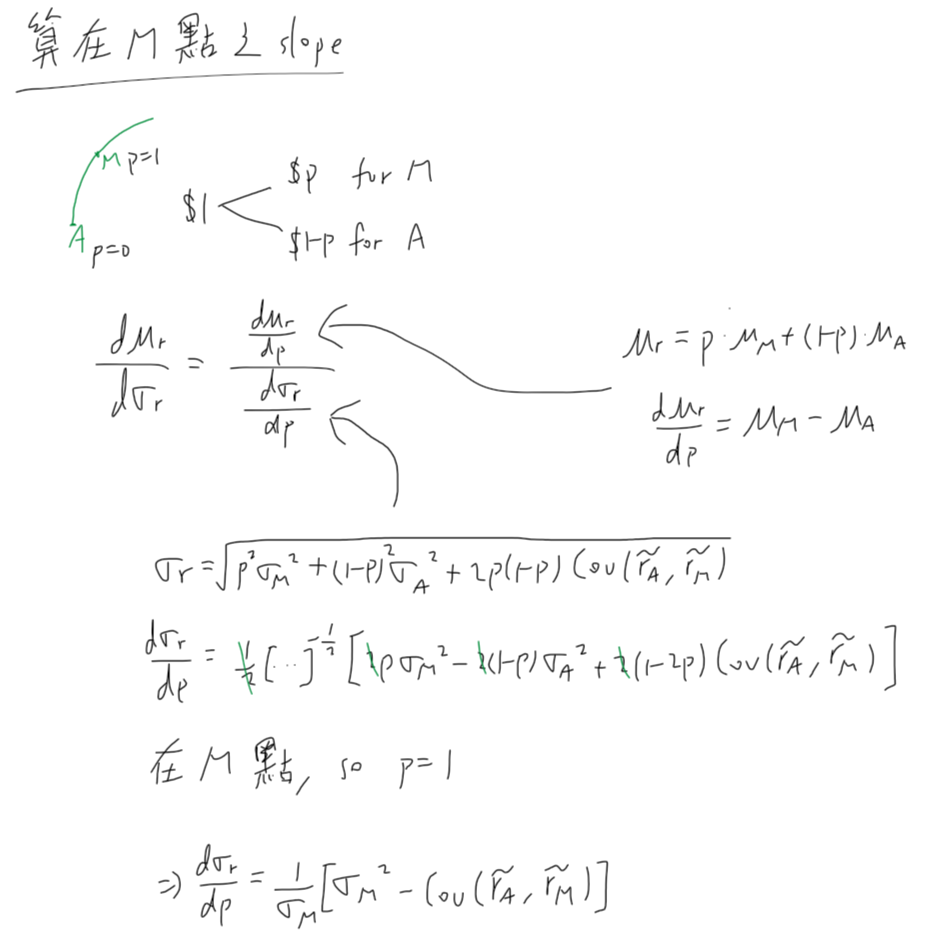 算在 M 點之 slope
M p=1
$p for M
$1
$1-p for A
A p=0
dμr/dσr = (dμr/dp)/(dσr/dp)
μr = p·μM + (1-p)·μA
dμr/dp = μM - μA
σr = √(p²σM² + (1-p)²σA² + 2p(1-p) Cov(r̃A, r̃M))
dσr/dp = 1/2 [...]^(-1/2) [2pσM² - 2(1-p)σA² + 2(1-2p) Cov(r̃A, r̃M)]
在 M 點, so p=1
⇒ dσr/dp = 1/σM [σM² - Cov(r̃A, r̃M)]